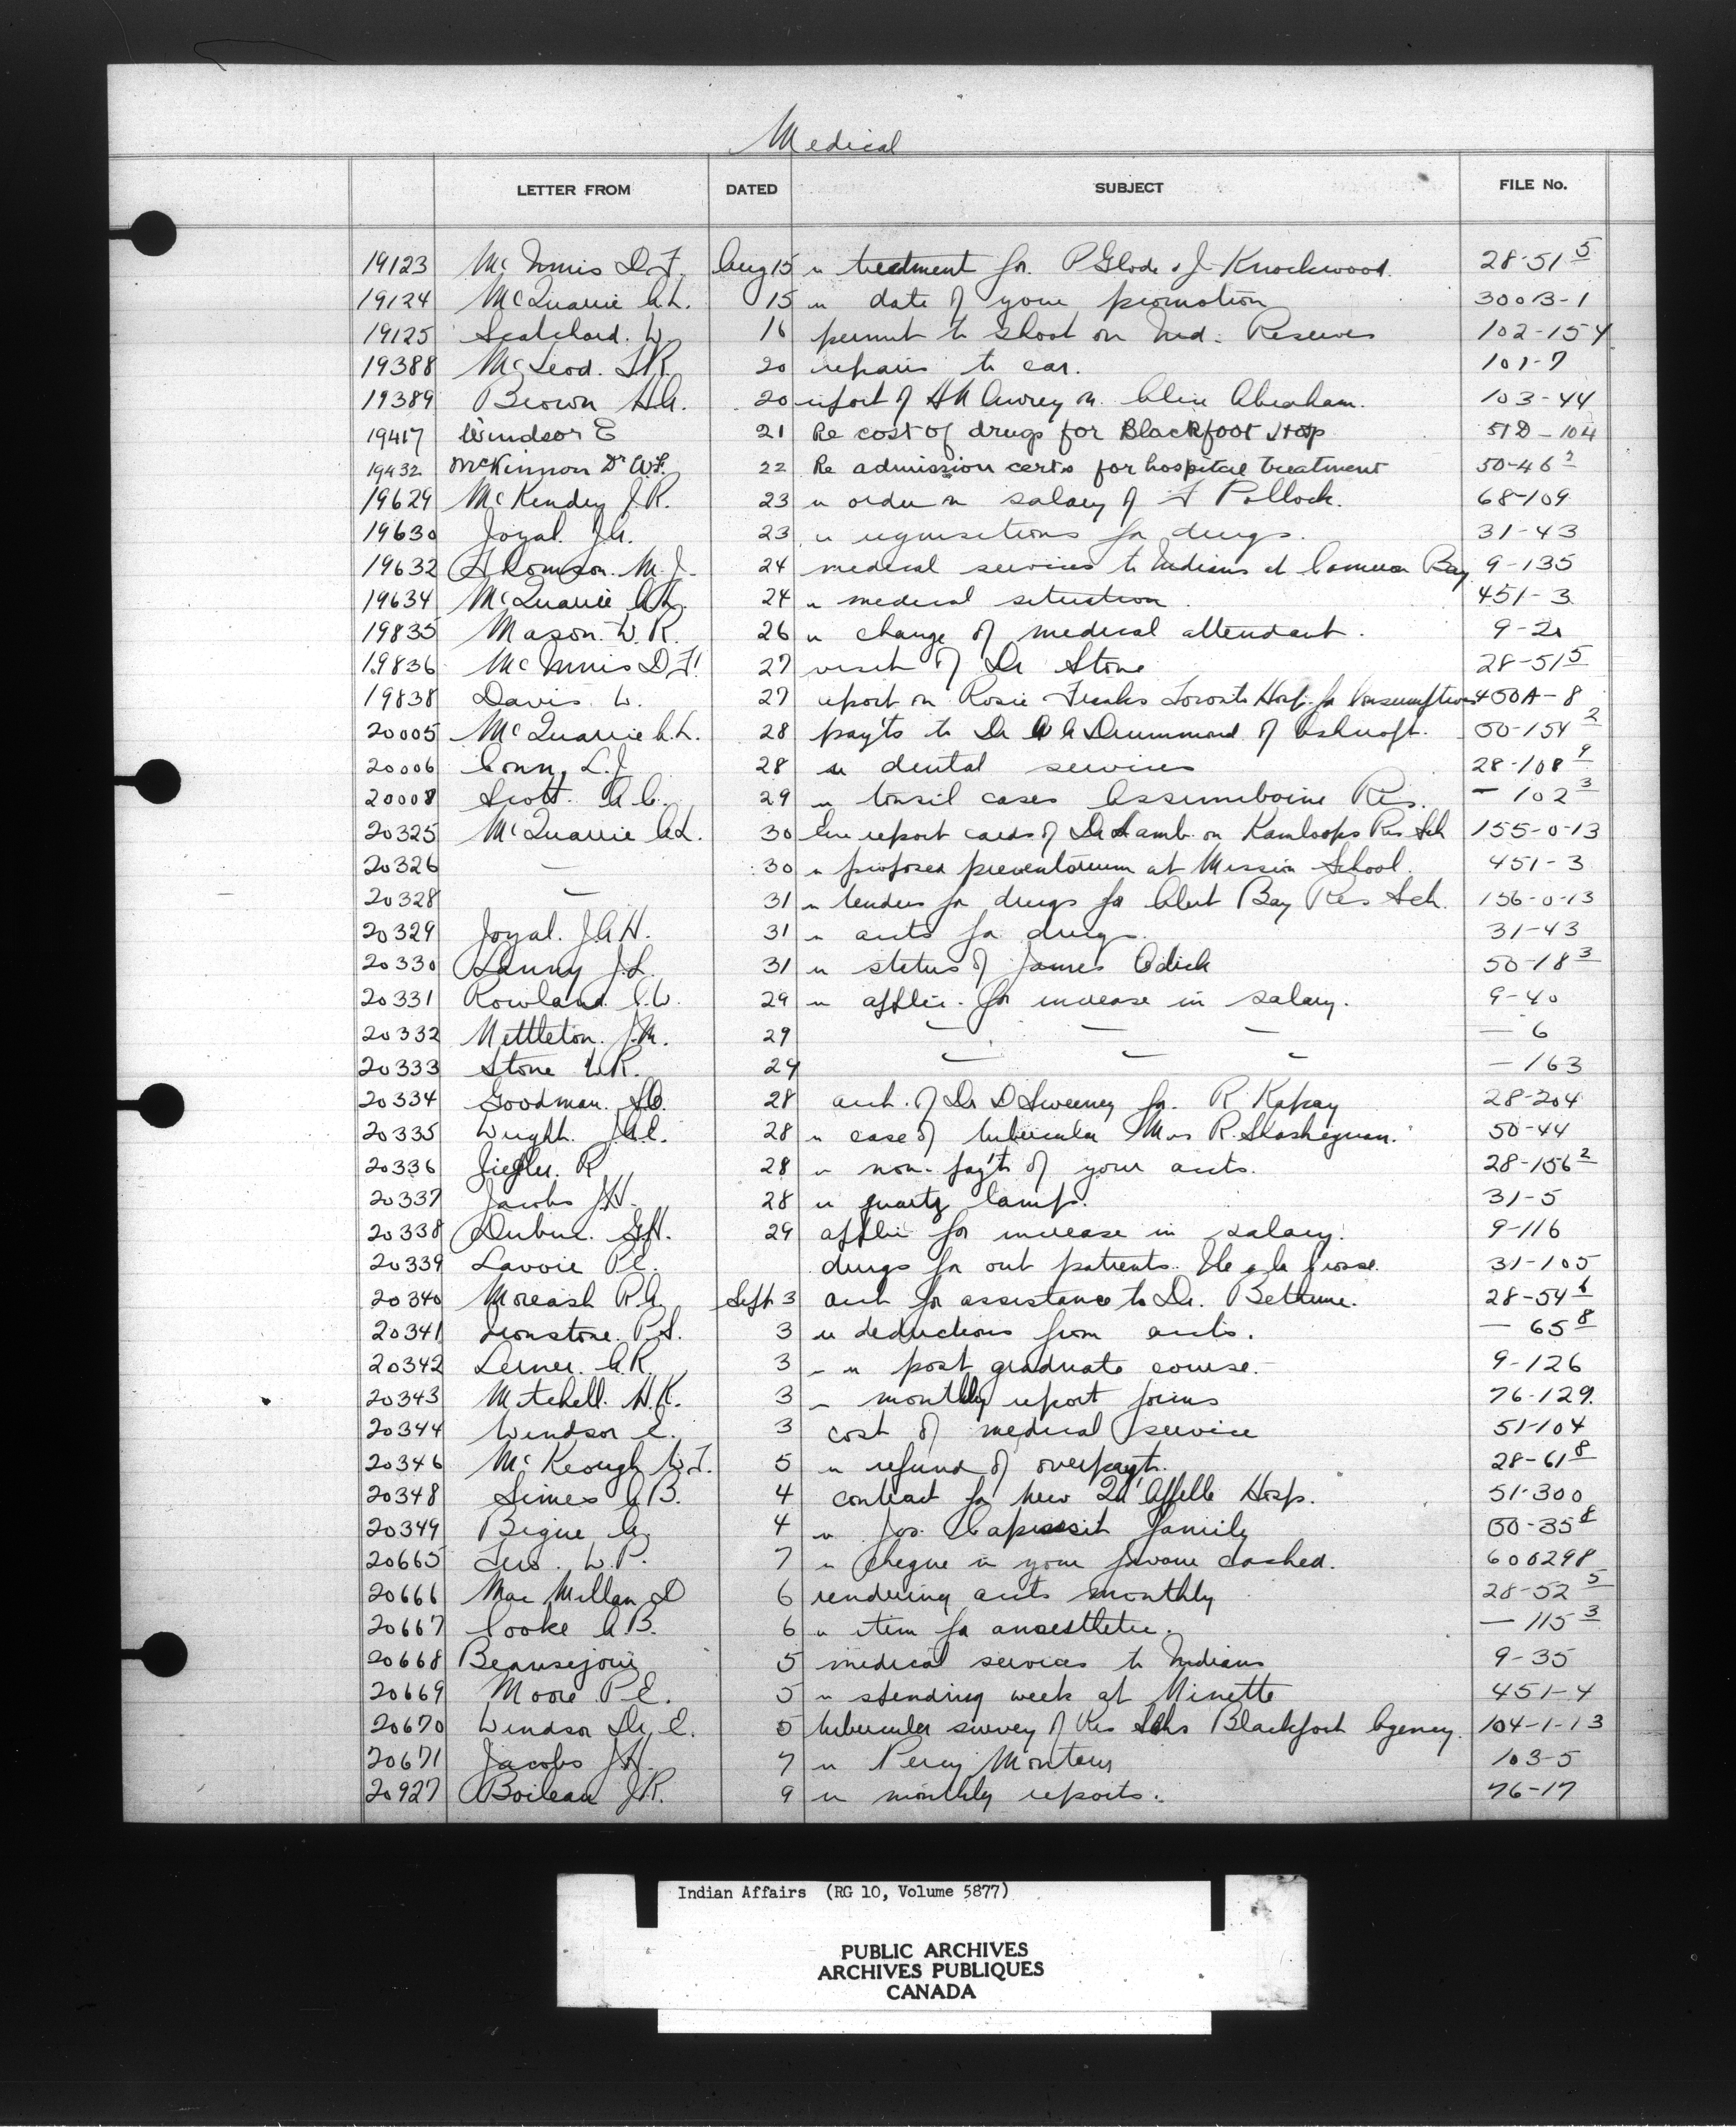 Medical
LETTER FROM DATED SUBJECT FILE No.
19123 McInnis D.F. Aug 15 re treatment for P Glode & J Knockwood. 28-51 5
19124 McQuarrie A.L. 15 re date of your promotion 300B-1
19125 Scatchard. W. 16 permit to shoot on Ind. Reserves 102-154
19388 McLeod. J.R. 20 repairs to car. 101-7
19389 Brown H.A. 20 report of H M Awrey re Clive Abraham. 103-44
19417 Windsor E 21 Re cost of drugs for Blackfoot Hosp 51D-104
19432 McKinnon Dr W.F. 22 Re admission certs for hospital treatment 50-46 2
19629 McKendry J.R. 23 re order re salary of F Pollock. 68-109
19630 Joyal. J.A. 23 re requisitions for drugs. 31-43
19632 Thomson. M.J. 24 medical services to Indians at Cameron Bay 9-135
19634 McQuarrie A.L. 24 re medical situation. 451-3
19835 Mason. W.R. 26 re change of medical attendant. 9-21
19836 McInnis D.F. 27 visit of Dr Stone 28-51 5
19838 Davis W. 27 report on Rosie Franks Toronto Hosp. for Consumptives 450A-8
20005 McQuarrie A.L. 28 pay'ts to Dr W A Drummond of Ashcroft. 50-154 2
20006 Conn, L.J. 28 re dental services 28-108 9
20008 Scott. A.C. 29 re tonsil cases Assiniboine Res. — 102 3
20325 McQuarrie A.L. 30 report cards of Dr Lamb on Kamloops Res Sch 155-0-13
20326 — 30 re proposed preventorium at Mission School. 451-3
20328 — 31 re tenders for drugs for Alert Bay Res Sch. 156-0-13
20329 Joyal. J.A.H. 31 re accts for drugs. 31-43
20330 Lanny J.L. 31 re status of James 50-18 3
20331 Rowland C.W. 29 re applic. for increase in salary. 9-40
20332 Nettleton. J.M. 29 — — — — 6
20333 Stone W.R. 29 — — — — 163
20334 Goodman. 28 acct. of Dr D Sweeney for R. Kapay 28-204
20335 Wright. 28 re case of tubercular Mrs R. 50-44
20336 Ziegler. R 28 re non-pay't of your accts. 28-156 2
20337 Jacobs J.H. 28 re quartz lamp. 31-5
20338 Dubuc. G.H. 29 applic for increase in salary. 9-116
20339 Lavoie P.E. drugs for out patients. Ile a la Crosse. 31-105
20340 Moreash R.A Sept 3 acct for assistance to Dr. Bethune. 28-54 6
20341 Ironstone. P.S. 3 re deductions from accts. — 65 8
20342 Lerner. A.R. 3 - re post graduate course. 9-126
20343 Mitchell. H.K. 3 - monthly report forms 76-129.
20344 Windsor E. 3 cost of medical service 51-104
20346 McKeough W.T. 5 re refund of overpay't. 28-61 8
20348 Simes A.B. 4 contract for new Qu'Appelle Hosp. 51-300
20349 Bigue A. 4 re Jos. family 50-35 8
20665 W.P. 7 re cheque in your favour cashed. 600298
20666 MacMillan D 6 rendering accts monthly 28-52 5
20667 Cooke A.B. 6 re item for anaesthetic. — 115 3
20668 Beausejour 5 medical services to Indians 9-35
20669 Moore P.E. 5 re spending week at Ninette 451-4
20670 Windsor Dr E. 5 tubercular survey of Res Schs Blackfoot Agency. 104-1-13
20671 Jacobs J.H. 7 re Percy Monteur 103-5
20927 Boileau J.R. 9 re monthly reports. 76-17
Indian Affairs (RG 10, Volume 5877)
PUBLIC ARCHIVES
ARCHIVES PUBLIQUES
CANADA